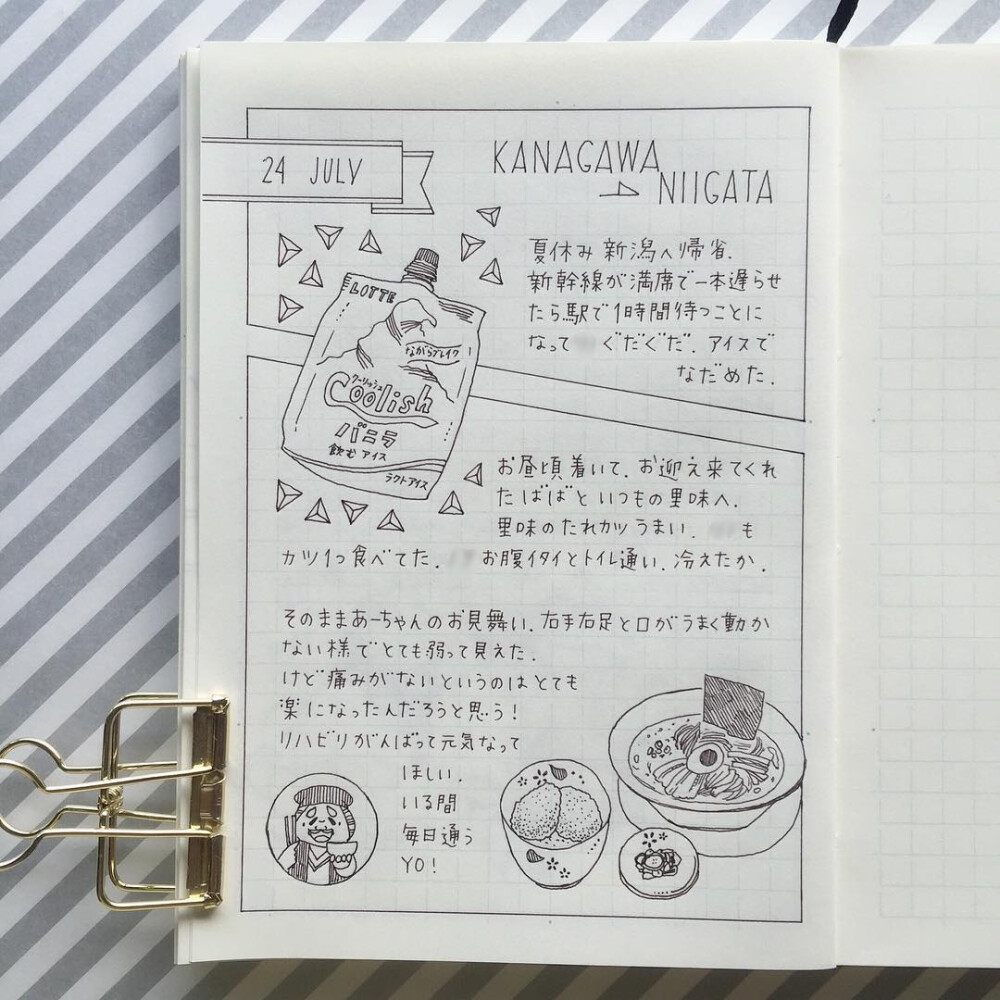 24 JULY
KANAGAWA
NIIGATA
夏休み 新潟へ帰省.
新幹線が満席で一本遅らせ
たら駅で1時間待つことに
なって ぐだぐだ. アイスで
なだめた.
LOTTE
ながらブレイク
クーリッシュ
Coolish
バニラ
飲む アイス
ラクトアイス
お昼頃着いて. お迎え来てくれ
たばばと いつもの里味へ.
里味のたれカツ うまい. も
カツ1つ食べてた. お腹イタイとトイレ通い. 冷えたか.
そのままあーちゃんのお見舞い. 右手右足と口がうまく動か
ない様でとても弱って見えた.
けど痛みがないというのはとても
楽になったんだろうと思う!
リハビリがんばって元気なって
ほしい.
いる間
毎日通う
YO!